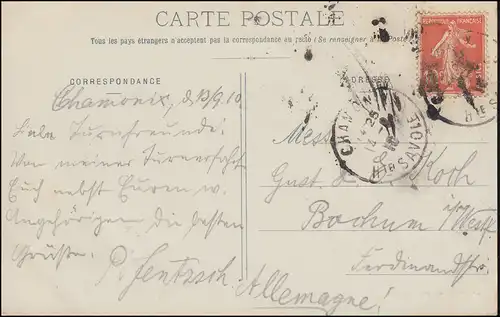 CARTE POSTALE
Tous les pays étrangers n'acceptent pas la correspondance au recto (Se renseigner à la Poste)
CORRESPONDANCE
ADRESSE
RÉPUBLIQUE FRANÇAISE
CHAMONIX
Hte SAVOIE
Chamonix, d. 13/9.10
Liebe Turnfreunde!
Von meiner Turnerfahrt
Euch nebst Euren w.
Angehörigen die besten
Grüße.
P. Jentzsch
Mess
Gust. Koth
Bochum i/Westf.
Ferdinandstr.
Allemagne!